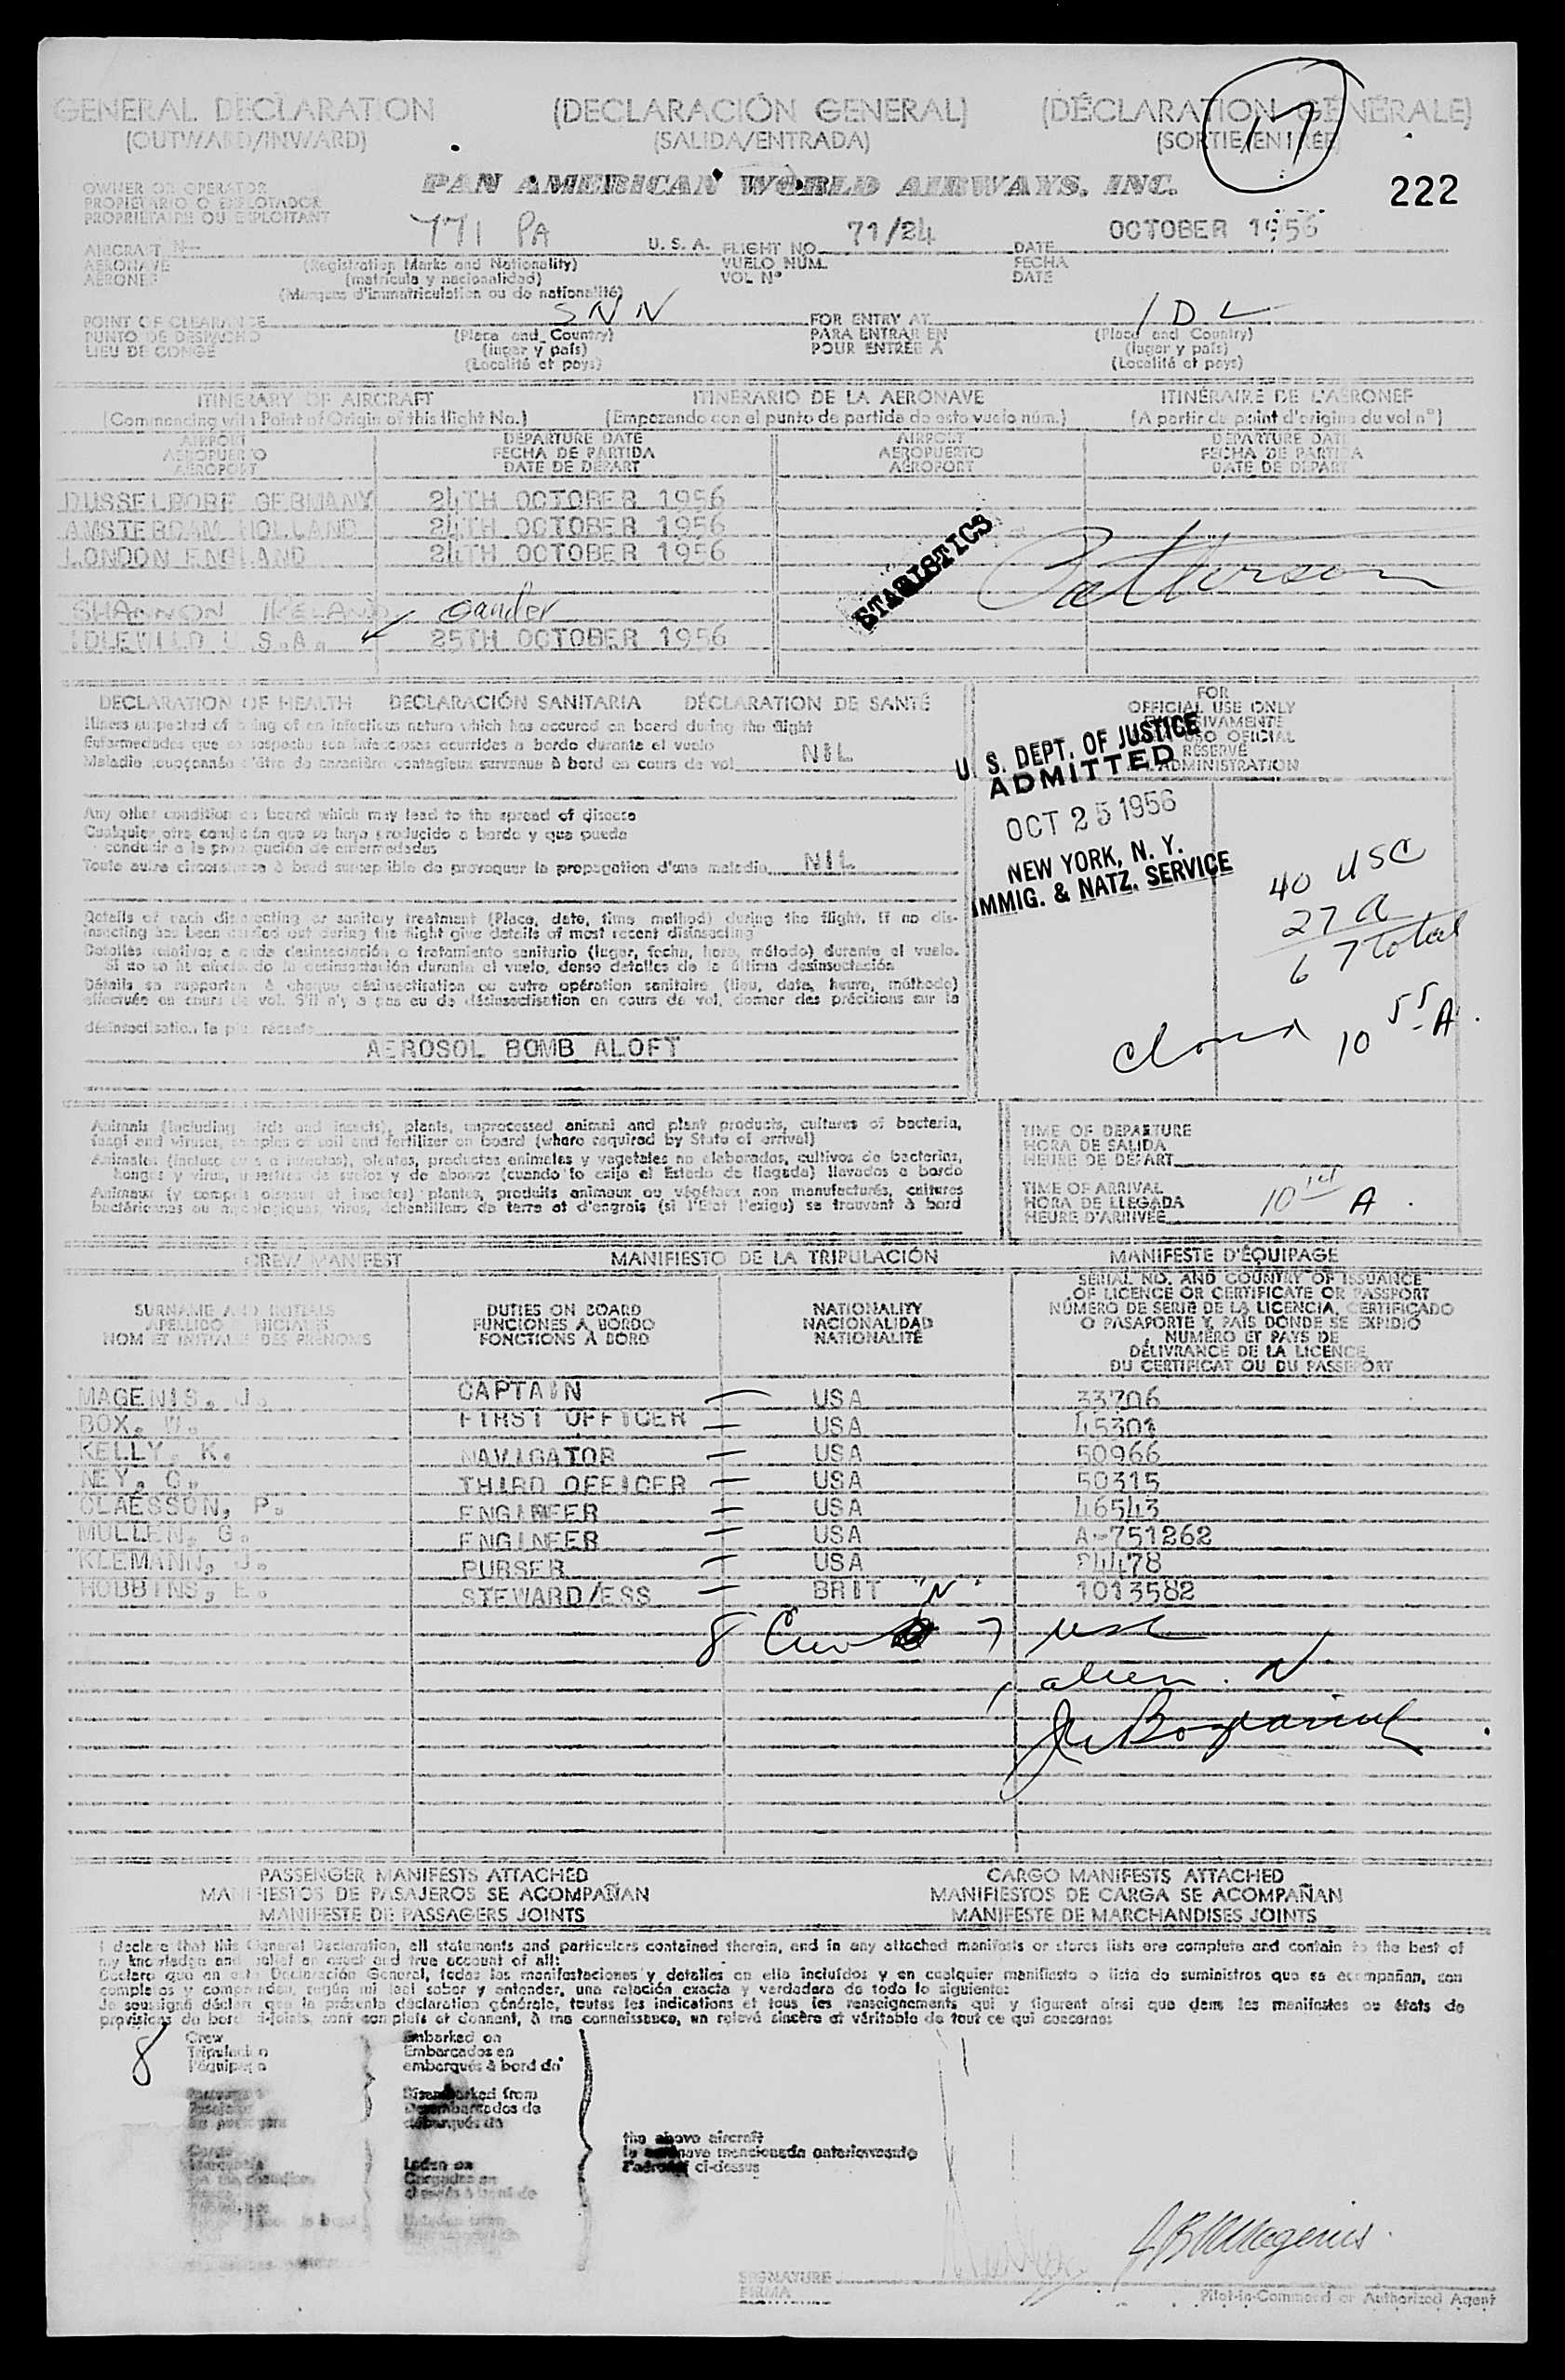 GENERAL DECLARATION (DECLARACIÓN GENERAL) (DÉCLARATION GÉNÉRALE)
(OUTWARD/INWARD) (SALIDA/ENTRADA) (SORTIE/ENTRÉE)
17
OWNER OR OPERATOR
PROPIETARIO O EXPLOTADOR
PROPRIÉTAIRE OU EXPLOITANT
PAN AMERICAN WORLD AIRWAYS, INC.
222
AIRCRAFT N 771 PA U. S. A. FLIGHT NO. 71/24 DATE OCTOBER 1956
AERONAVE (Registration Marks and Nationality) VUELO NÚM. FECHA
AÉRONEF (matrícula y nacionalidad) VOL N° DATE
(Marques d'immatriculation ou de nationalité)
POINT OF CLEARANCE SNN FOR ENTRY AT IDL
PUNTO DE DESPACHO (Place and Country) PARA ENTRAR EN (Place and Country)
LIEU DE CONGÉ (lugar y país) POUR ENTRÉE À (lugar y país)
(Localité et pays) (Localité et pays)
ITINERARY OF AIRCRAFT ITINERARIO DE LA AERONAVE ITINÉRAIRE DE L'AÉRONEF
(Commencing with Point of Origin of this flight No.) (Empezando con el punto de partida de este vuelo núm.) (A partir du point d'origine du vol n°)
AIRPORT DEPARTURE DATE AIRPORT DEPARTURE DATE
AEROPUERTO FECHA DE PARTIDA AEROPUERTO FECHA DE PARTIDA
AÉROPORT DATE DE DÉPART AÉROPORT DATE DE DÉPART
DUSSELDORF GERMANY 24TH OCTOBER 1956
AMSTERDAM HOLLAND 24TH OCTOBER 1956
LONDON ENGLAND 24TH OCTOBER 1956
STATISTICS
Patterson
SHANNON IRELAND Gander
IDLEWILD U.S.A. 25TH OCTOBER 1956
DECLARATION OF HEALTH DECLARACIÓN SANITARIA DÉCLARATION DE SANTÉ
Illness suspected of being of an infectious nature which has occured on board during the flight
Enfermedades que se sospecha son infecciosas ocurridas a bordo durante el vuelo
Maladie soupçonnée d'être de caractère contagieux survenue à bord en cours de vol NIL
Any other condition on board which may lead to the spread of disease
Cualquier otra condición que se haya producido a bordo y que pueda
conducir a la propagación de enfermedades
Toute autre circonstance à bord susceptible de provoquer la propagation d'une maladie NIL
Details of each disinsecting or sanitary treatment (Place, date, time, method) during the flight. If no dis-
insecting has been carried out during the flight give details of most recent disinsecting
Detalles relativos a cada desinsectación o tratamiento sanitario (lugar, fecha, hora, método) durante el vuelo.
Si no se ha efectuado la desinsectación durante el vuelo, dense detalles de la última desinsectación
Détails se rapportant à chaque désinsectisation ou autre opération sanitaire (lieu, date, heure, méthode)
effectuée en cours de vol. S'il n'y a pas eu de désinsectisation en cours de vol, donner des précisions sur la
désinsectisation la plus récente
AEROSOL BOMB ALOFT
FOR
OFFICIAL USE ONLY
EXCLUSIVAMENTE
PARA USO OFICIAL
RÉSERVÉ
ADMINISTRATION
U. S. DEPT. OF JUSTICE
ADMITTED
OCT 25 1956
NEW YORK, N. Y.
IMMIG. & NATZ. SERVICE
40 USC
27 A
67 total
10 55 A.
Animals (including birds and insects), plants, unprocessed animal and plant products, cultures of bacteria,
fungi and viruses, samples of soil and fertilizer on board (where required by State of arrival)
Animales (incluso aves e insectos), plantas, productos animales y vegetales no elaborados, cultivos de bacterias,
hongos y virus, muestras de suelos y de abonos (cuando lo exija el Estado de llegada) llevados a bordo
Animaux (y compris oiseaux et insectes) plantes, produits animaux ou végétaux non manufacturés, cultures
bactériennes ou mycologiques, virus, échantillons de terre et d'engrais (si l'Etat l'exige) se trouvant à bord
TIME OF DEPARTURE
HORA DE SALIDA
HEURE DE DÉPART
TIME OF ARRIVAL
HORA DE LLEGADA
HEURE D'ARRIVÉE 10 A.
CREW MANIFEST MANIFIESTO DE LA TRIPULACIÓN MANIFESTE D'ÉQUIPAGE
SURNAME AND INITIALS
APELLIDO E INICIALES
NOM ET INITIALE DES PRÉNOMS
DUTIES ON BOARD
FUNCIONES A BORDO
FONCTIONS À BORD
NATIONALITY
NACIONALIDAD
NATIONALITÉ
SERIAL NO. AND COUNTRY OF ISSUANCE
OF LICENCE OR CERTIFICATE OR PASSPORT
NÚMERO DE SERIE DE LA LICENCIA, CERTIFICADO
O PASAPORTE Y PAÍS DONDE SE EXPIDIÓ
NUMÉRO ET PAYS DE
DÉLIVRANCE DE LA LICENCE,
DU CERTIFICAT OU DU PASSEPORT
MAGENIS, J. CAPTAIN USA 33706
BOX, W. FIRST OFFICER USA 45301
KELLY, K. NAVIGATOR USA 50966
NEY, C. THIRD OFFICER USA 50315
CLAESSON, P. ENGINEER USA 46543
MULLEN, G. ENGINEER USA A-751262
KLEMANN, J. PURSER USA 4478
HOBBINS, E. STEWARD/ESS BRIT "N" 1013582
8 Crew 7 USC
1 alien. N
PASSENGER MANIFESTS ATTACHED CARGO MANIFESTS ATTACHED
MANIFIESTOS DE PASAJEROS SE ACOMPAÑAN MANIFIESTOS DE CARGA SE ACOMPAÑAN
MANIFESTE DE PASSAGERS JOINTS MANIFESTE DE MARCHANDISES JOINTS
I declare that this General Declaration, all statements and particulars contained therein, and in any attached manifests or stores lists are complete and contain to the best of
my knowledge and belief an exact and true account of all:
Declaro que en esta Declaración General, todas las manifestaciones y detalles en ella incluídos y en cualquier manifiesto o lista de suministros que se acompañan, son
completos y comprenden, según mi leal saber y entender, una relación exacta y verdadera de todo lo siguiente:
Je soussigné déclare que la présente déclaration générale, toutes les indications et tous les renseignements qui y figurent ainsi que dans les manifestes ou états de
provisions de bord ci-joints, sont complets et donnent, à ma connaissance, un relevé sincère et véritable de tout ce qui concerne:
8 Crew Embarked on
Tripulación Embarcados en
l'équipage embarqués à bord de
Disembarked from
Desembarcados de
débarqués de
the above aircraft
la aeronave mencionada anteriormente
l'aéronef ci-dessus
Laden on
Cargados en
SIGNATURE
FIRMA
J B Magenis
Pilot-in-Command or Authorized Agent